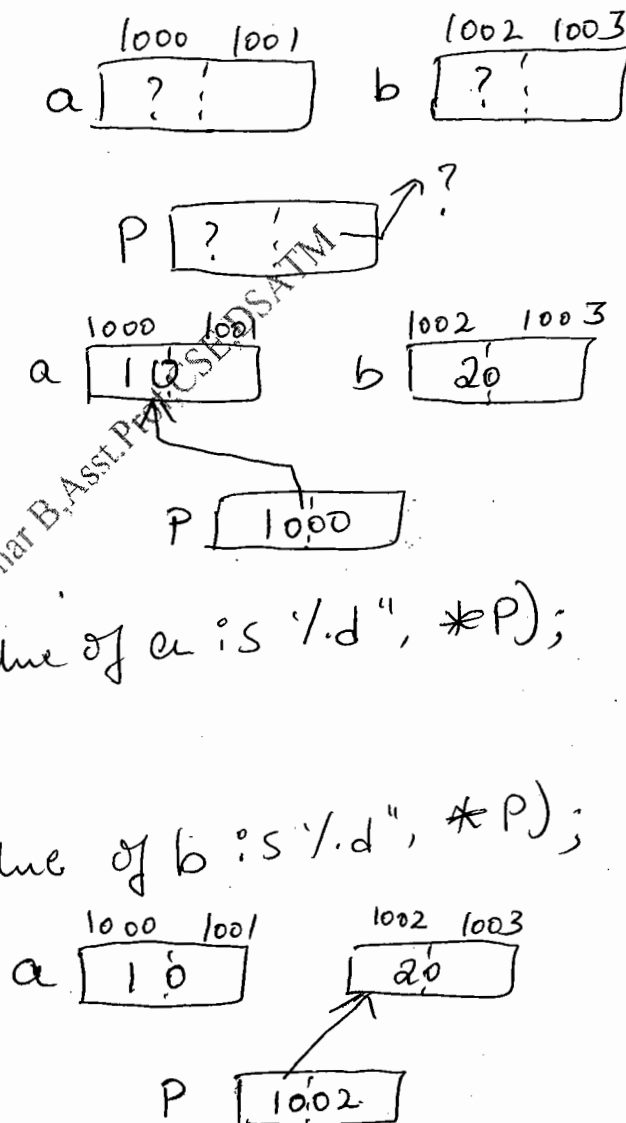 1000 1001 1002 1003
a ? b ?
P ? ?
1000 1001 1002 1003
a 10 b 20
P 1000
of a is %d", *P);
of b is %d", *P);
1000 1001 1002 1003
a 10 20
P 1002
B, Asst.Prof, CSE, DSATM